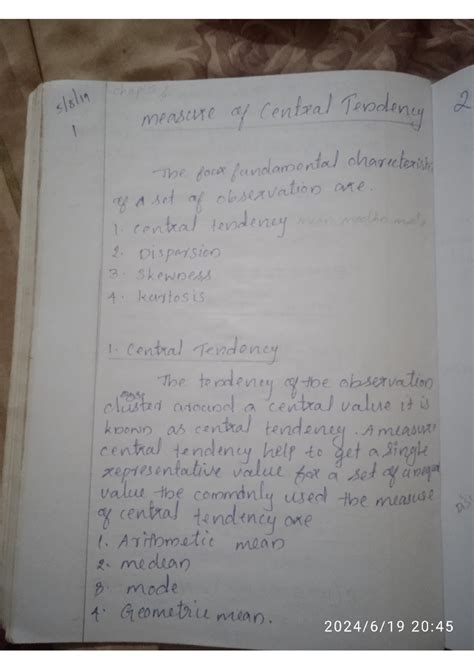 5/8/19
chapter
1
2
Measure of Central Tendency
The four fundamental characteristi
of a set of observation are.
1. Central tendency mean
2. Dispersion
3. Skewness
4. Kartosis
1. Central Tendency
The tendency of the observation
cluster around a central value it is
known as central tendency. A measure
central tendency help to get a single
representative value for a set of
value the commonly used the measure
of central tendency are
1. Arithmetic mean
2. medean
3. mode
4. Geometric mean.
2024/6/19 20:45